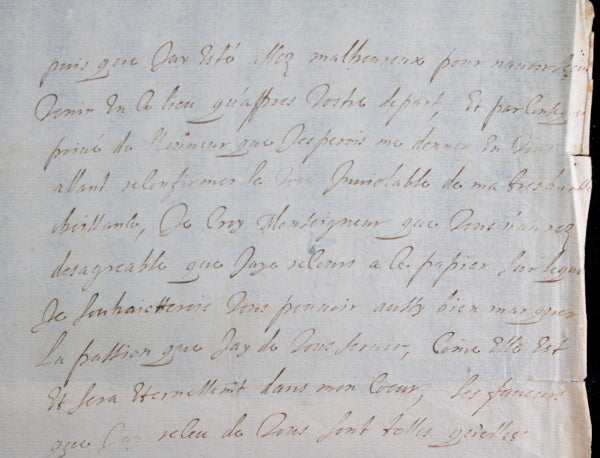 puis que Jay esté assez malheureux pour navoir
venir En ce lieu qu'aspres vostre depart, Et par Conseque
privé de l'honneur que Jesperois me donner En vous
allant reconfirmer le voeu Inviolable de ma tres
obeissance, Je Croy Monseigneur que vous n'aurez
desagreable que Jaye recours a ce papier sur leque
Je souhaitterois vous pouvoir aussy bien marquer
La passion que Jay de vous servir, Come Elle Est
Et sera Eternellemt dans mon Coeur, les faveurs
que Jay receu de vous sont telles qu'elles